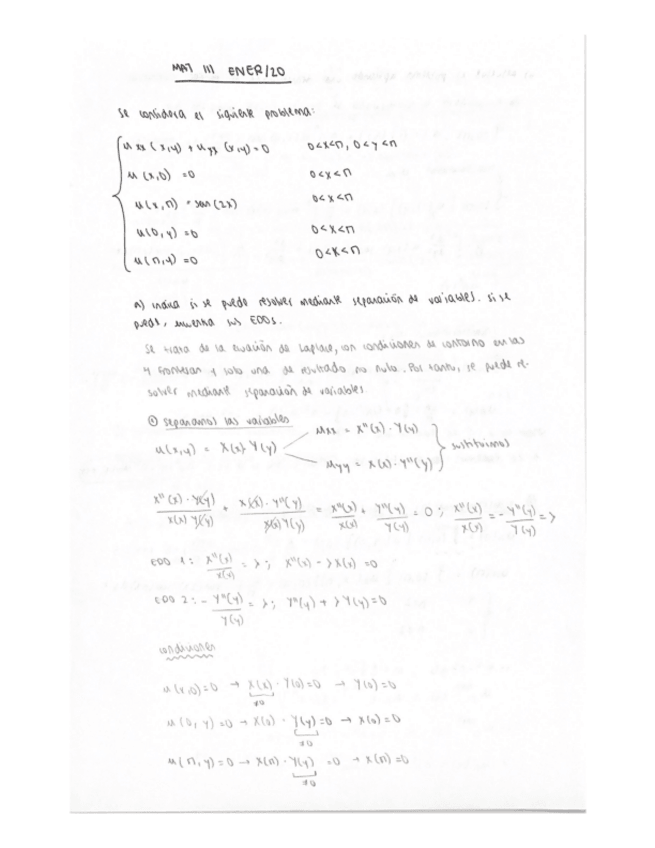 MAT III ENER/20
Se considera el siguiente problema:
u xx (x,y) + u yy (x,y) = 0    0<x<π, 0<y<π
u (x,0) = 0    0<x<π
u (x,π) = sen (2x)    0<x<π
u (0,y) = 0    0<x<π
u (π,y) = 0    0<x<π
a) indica si se puede resolver mediante separación de variables. si se
puede, encuentra sus EDOs.
Se trata de la ecuación de Laplace, con condiciones de contorno en las
4 fronteras y solo una de resultado no nula. Por tanto, se puede re-
solver mediante separación de variables.
① separamos las variables
u(x,y) = X(x) Y(y)    uxx = X''(x) · Y(y)
uyy = X(x) · Y''(y)    sustituimos
X''(x) · Y(y) / X(x) Y(y) + X(x) · Y''(y) / X(x) Y(y) = X''(x) / X(x) + Y''(y) / Y(y) = 0 ; X''(x) / X(x) = - Y''(y) / Y(y) = λ
EDO 1 : X''(x) / X(x) = λ ; X''(x) - λ X(x) = 0
EDO 2 : - Y''(y) / Y(y) = λ ; Y''(y) + λ Y(y) = 0
condiciones
u (x,0) = 0 → X(x) · Y(0) = 0 → Y(0) = 0
≠0
u (0, y) = 0 → X(0) · Y(y) = 0 → X(0) = 0
≠0
u ( π, y) = 0 → X(π) · Y(y) = 0 → X(π) = 0
≠0